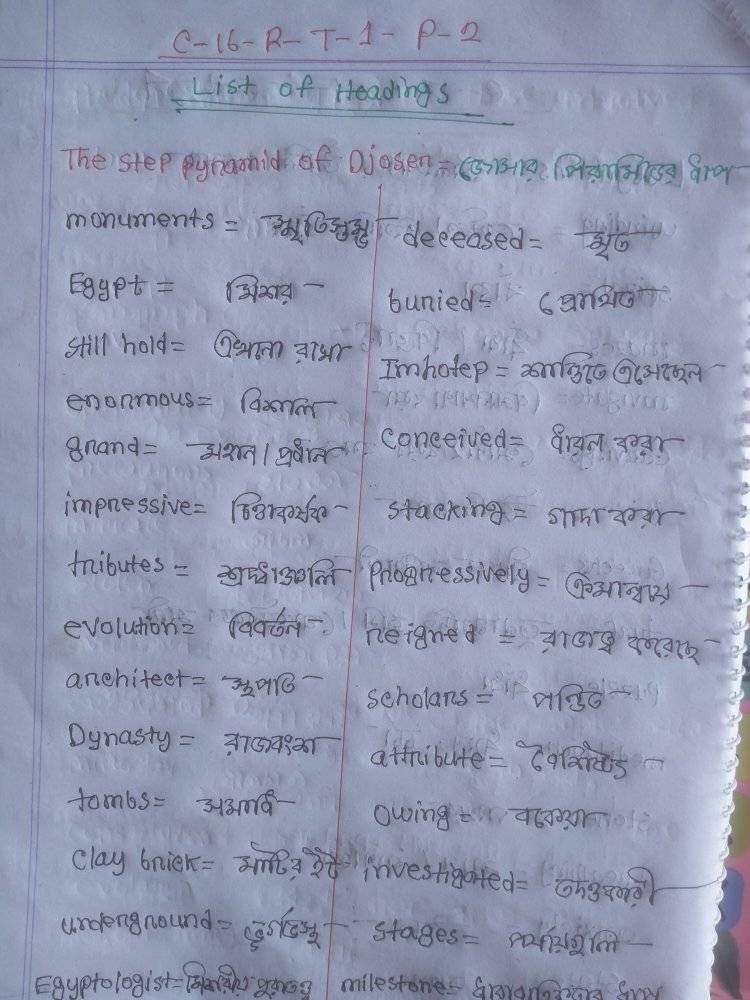 C-16-R-T-1-P-2
List of Headings
The step pyramid of Djosen = জোসার পিরামিডের ধাপ
monuments = স্মৃতিস্তম্ভ
Egypt = মিশর
still hold = এখনো রাখা
enormous = বিশাল
grand = মহান / প্রধান
impressive = চিত্তাকর্ষক
tributes = শ্রদ্ধাঞ্জলি
evolution = বিবর্তন
architect = স্থপতি
Dynasty = রাজবংশ
tombs = সমাধি
Clay brick = মাটির ইট
underground = ভূগর্ভস্থ
Egyptologist = মিশরীয় পুরাতত্ত্ব
deceased = মৃত
buried = প্রোথিত
Imhotep = শান্তিতে এসেছেন
Conceived = ধারন করা
stacking = গাদা করা
Progressively = ক্রমান্বয়ে
reigned = রাজত্ব করেছে
scholars = পন্ডিত
attribute = বৈশিষ্ট্য
owing = বকেয়া
investigated = তদন্তকারী
stages = পর্যায়গুলি
milestone =